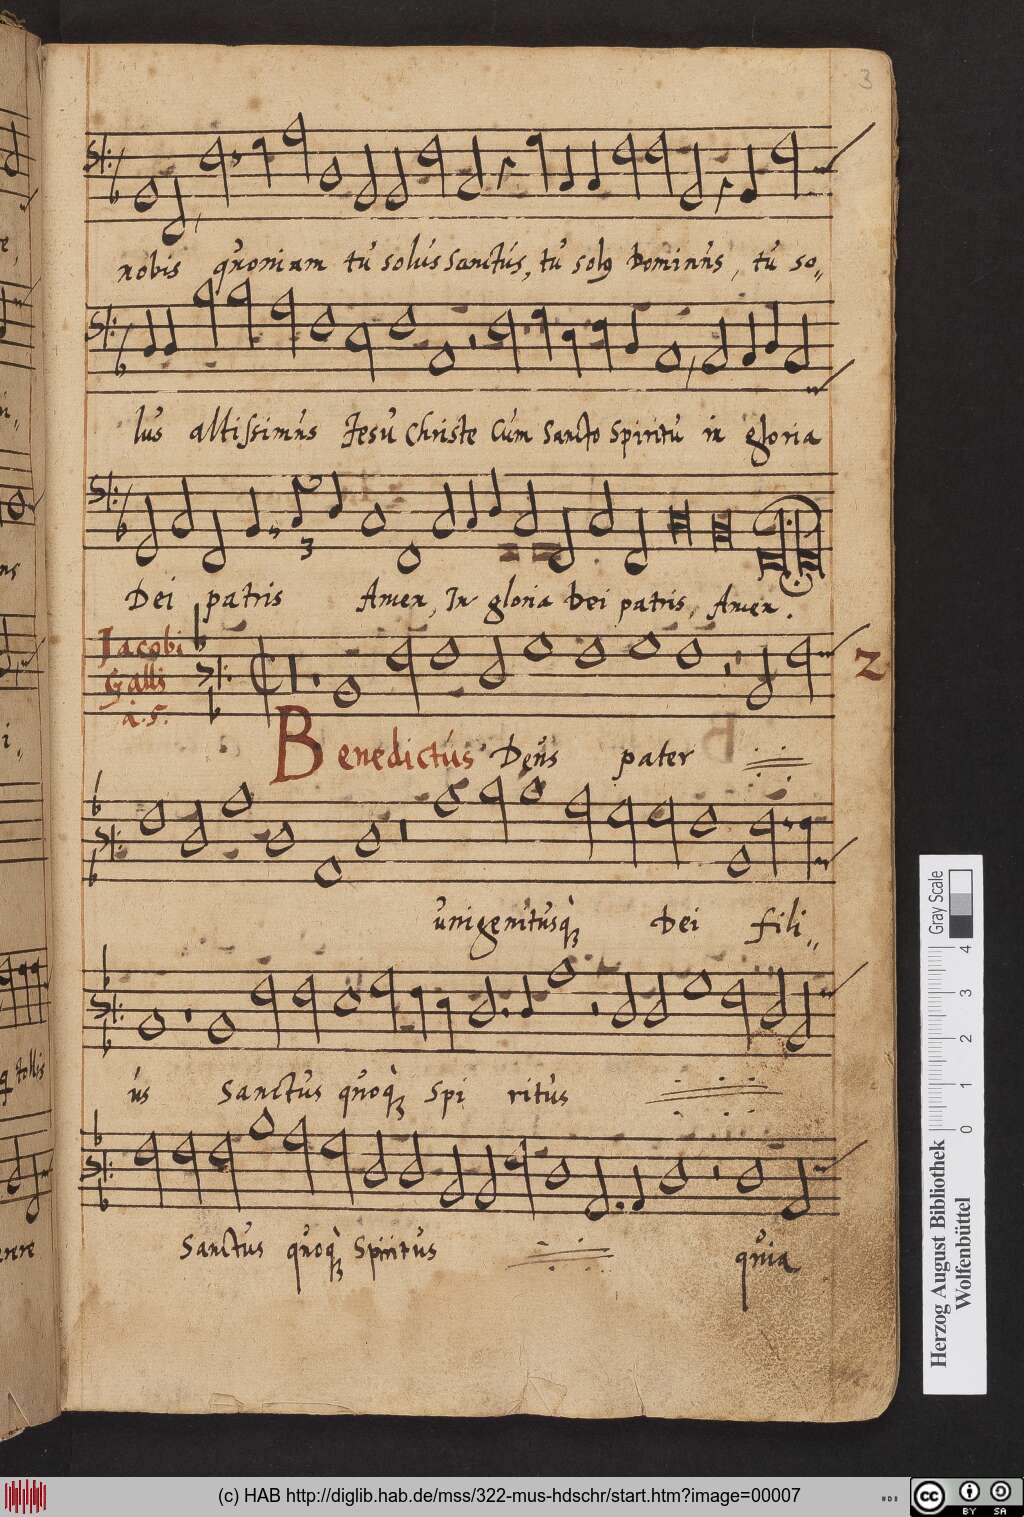 3
nobis quoniam tu solus Sanctus, tu solus Dominus, tu so„
lus altissimus Jesu Christe Cum Sancto Spiritu in gloria
3
Dei patris Amen, In gloria Dei patris, Amen.
Jacobi
Galli
à. 5.
2
Benedictus Deus pater
unigenitusq̀ Dei Fili„
us Sanctus quoq̀ Spi ritus
Sanctus quoq̀ Spiritus quia
Gray Scale
0 1 2 3 4
Herzog August Bibliothek
Wolfenbüttel
(c) HAB http://diglib.hab.de/mss/322-mus-hdschr/start.htm?image=00007
cc BY SA